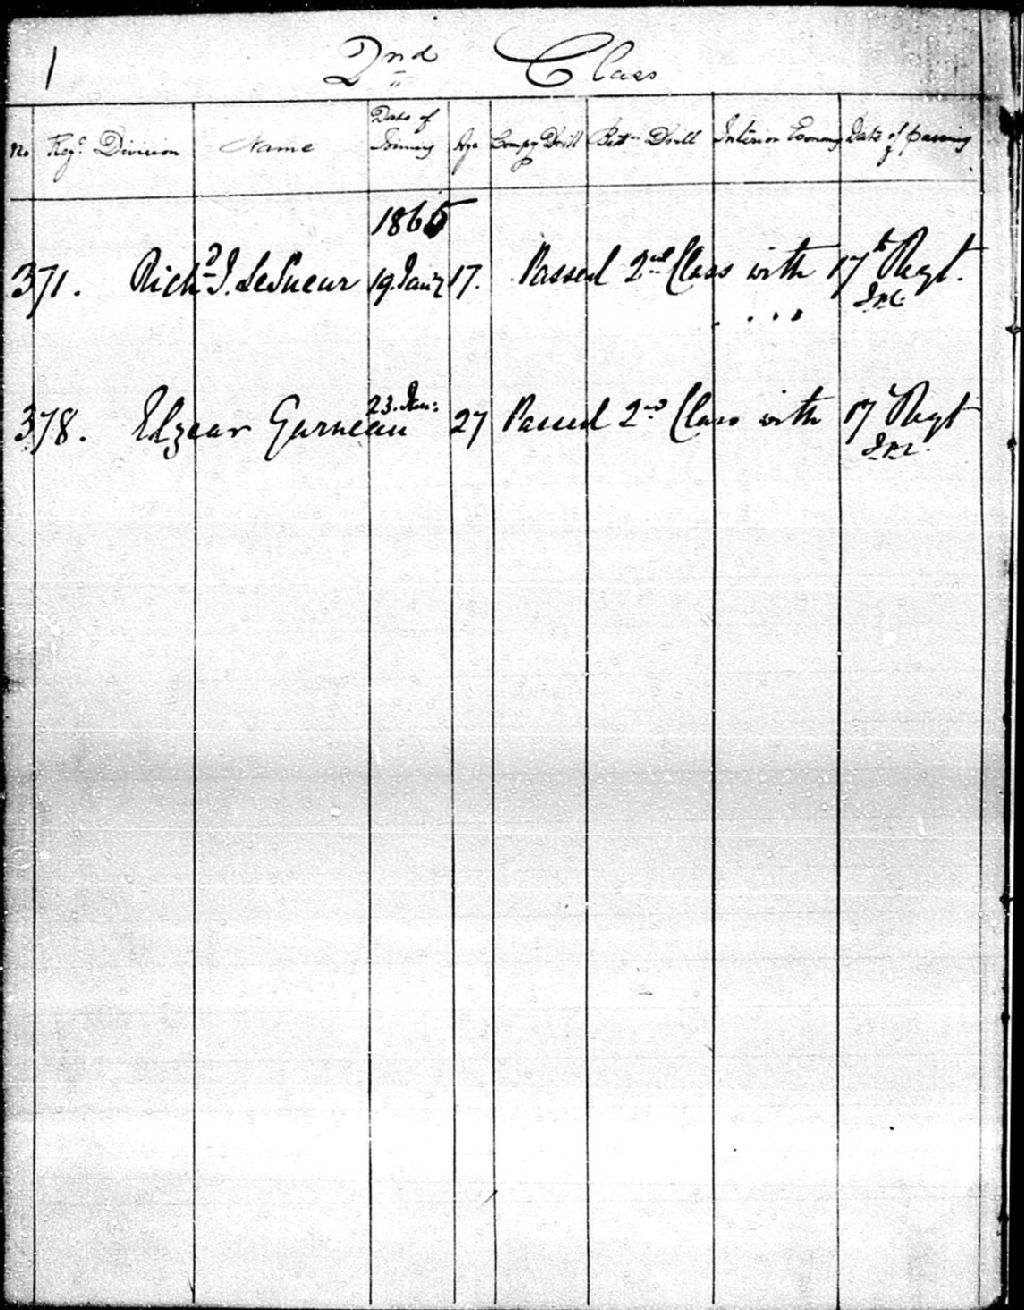 1 2nd Class
No Regt. Division Name Date of Joining Age Compy Drill Batn Drill Interior Economy Date of passing
1865
371. Richd J. LeSueur 19 Jany 17. Passed 2nd Class with 17th Regt.
378. Elzear Garneau 23. Jan: 27 Passed 2nd Class with 17 Regt